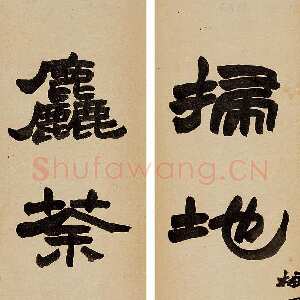 掃地
麤茶
Shufawang.CN